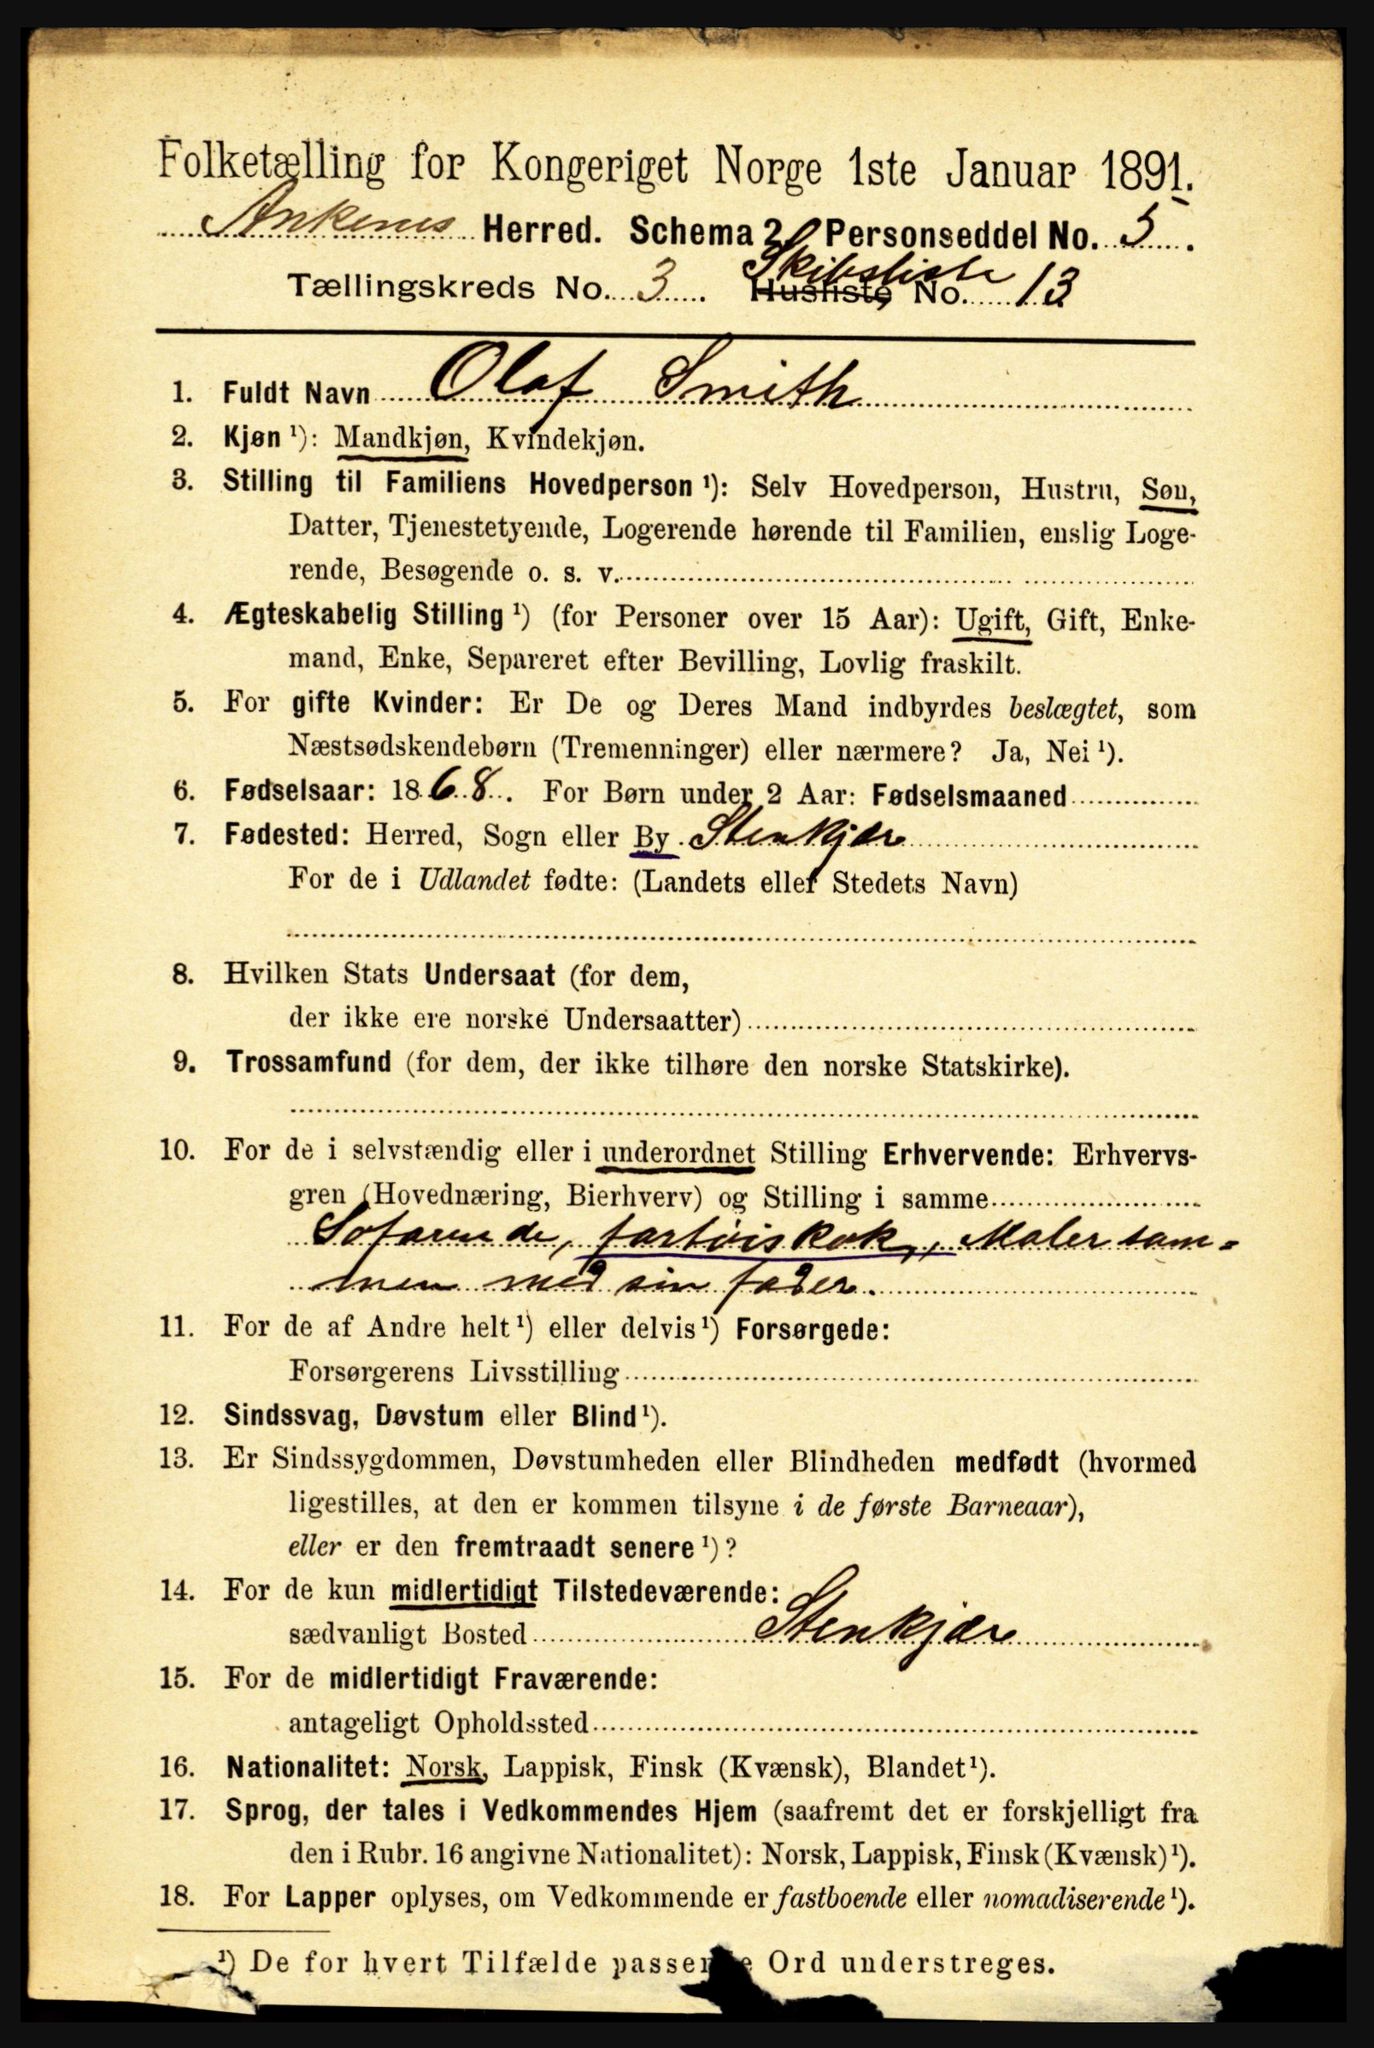 Folketælling for Kongeriget Norge 1ste Januar 1891.
Ankenes Herred. Schema 2 Personseddel No. 5.
Tællingskreds No. 3. Skibsliste Husliste No. 13
1. Fuldt Navn Olaf Smith
2. Kjøn ¹): Mandkjøn, Kvindekjøn.
3. Stilling til Familiens Hovedperson ¹): Selv Hovedperson, Hustru, Søn,
Datter, Tjenestetyende, Logerende hørende til Familien, enslig Loge-
rende, Besøgende o. s. v.
4. Ægteskabelig Stilling ¹) (for Personer over 15 Aar): Ugift, Gift, Enke-
mand, Enke, Separeret efter Bevilling, Lovlig fraskilt.
5. For gifte Kvinder: Er De og Deres Mand indbyrdes beslægtet, som
Næstsødskendebørn (Tremenninger) eller nærmere? Ja, Nei ¹).
6. Fødselsaar: 1868. For Børn under 2 Aar: Fødselsmaaned
7. Fødested: Herred, Sogn eller By. Stenkjær
For de i Udlandet fødte: (Landets eller Stedets Navn)
8. Hvilken Stats Undersaat (for dem,
der ikke ere norske Undersaatter)
9. Trossamfund (for dem, der ikke tilhøre den norske Statskirke).
10. For de i selvstændig eller i underordnet Stilling Erhvervende: Erhvervs-
gren (Hovednæring, Bierhverv) og Stilling i samme
Søfarende, fartøiskok, Maler sam-
men med sin fader.
11. For de af Andre helt ¹) eller delvis ¹) Forsørgede:
Forsørgerens Livsstilling
12. Sindssvag, Døvstum eller Blind ¹).
13. Er Sindssygdommen, Døvstumheden eller Blindheden medfødt (hvormed
ligestilles, at den er kommen tilsyne i de første Barneaar),
eller er den fremtraadt senere ¹)?
14. For de kun midlertidigt Tilstedeværende:
sædvanligt Bosted Stenkjær
15. For de midlertidigt Fraværende:
antageligt Opholdssted
16. Nationalitet: Norsk, Lappisk, Finsk (Kvænsk), Blandet ¹).
17. Sprog, der tales i Vedkommendes Hjem (saafremt det er forskjelligt fra
den i Rubr. 16 angivne Nationalitet): Norsk, Lappisk, Finsk (Kvænsk) ¹).
18. For Lapper oplyses, om Vedkommende er fastboende eller nomadiserende ¹).
¹) De for hvert Tilfælde passende Ord understreges.